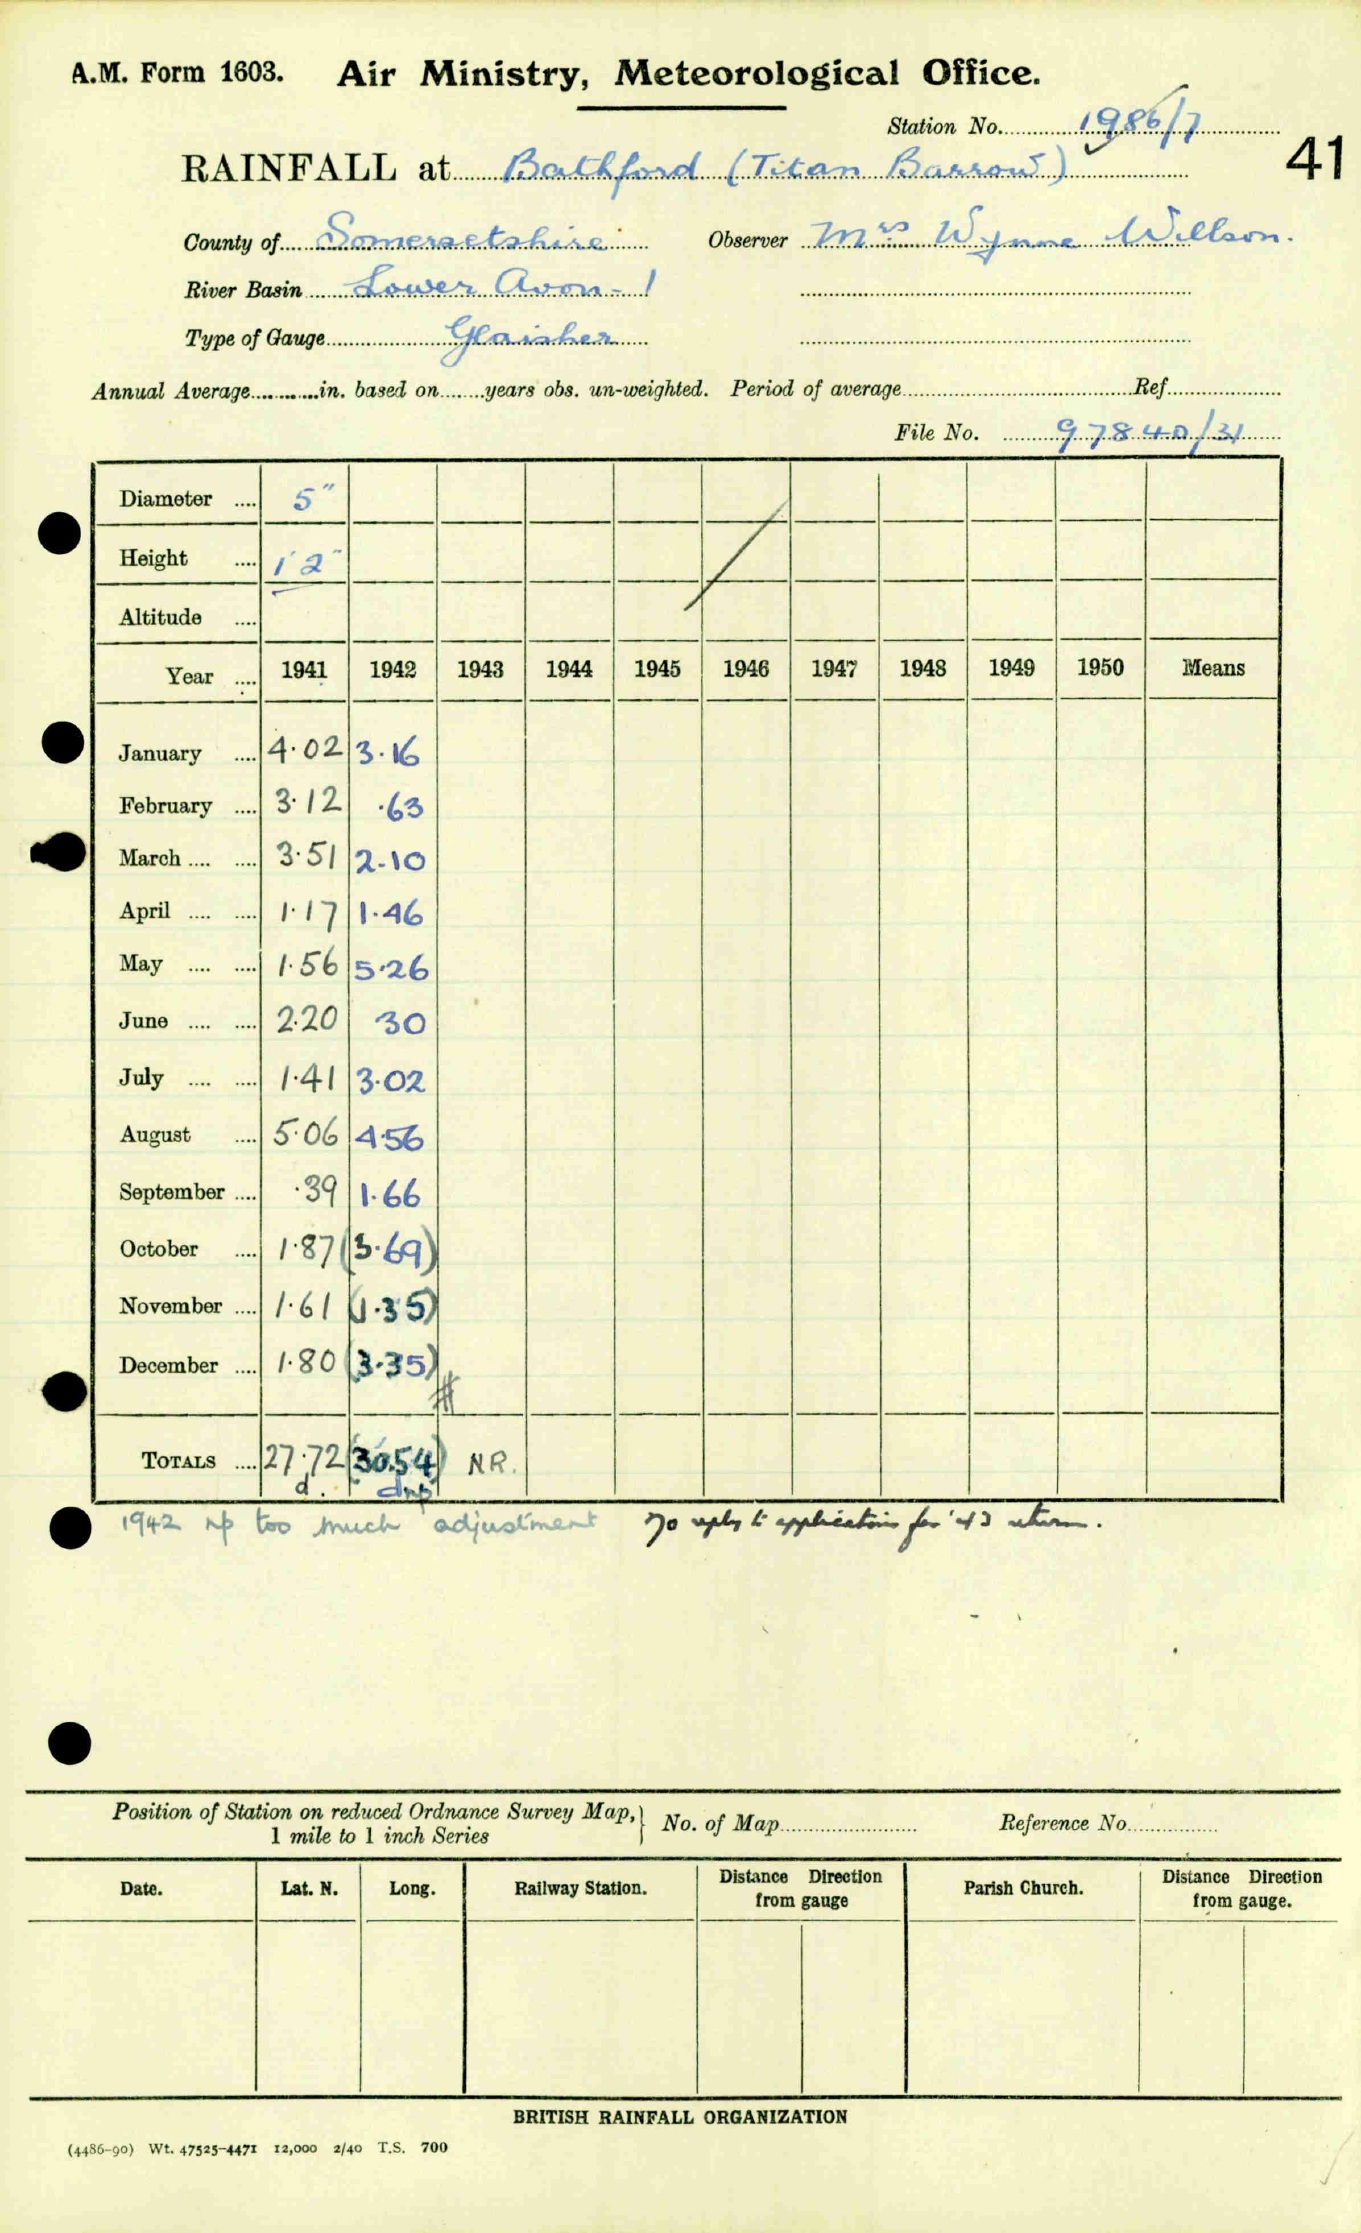 A.M. Form 1603. Air Ministry, Meteorological Office.
Station No. 1986/7
41
RAINFALL at Bathford (Titan Barrow)
County of Somersetshire Observer Mrs Wynne Willson.
River Basin Lower Avon - 1
Type of Gauge Glaisher
Annual Average............in. based on........years obs. un-weighted. Period of average........Ref........
File No. 97840/31
Diameter .... 5"
Height .... 1' 2"
Altitude ....
Year .... 1941 1942 1943 1944 1945 1946 1947 1948 1949 1950 Means
January .... 4.02 3.16
February .... 3.12 .63
March .... .... 3.51 2.10
April .... .... 1.17 1.46
May .... .... 1.56 5.26
June .... .... 2.20 30
July .... .... 1.41 3.02
August .... 5.06 4.56
September .... .39 1.66
October .... 1.87 (3.69)
November .... 1.61 (1.35)
December .... 1.80 (3.35)
TOTALS .... 27.72 (30.54) N.R.
d. dnp
1942 np too much adjustment No reply to applications for '43 return.
Position of Station on reduced Ordnance Survey Map, } No. of Map........ Reference No........
1 mile to 1 inch Series
Date. Lat. N. Long. Railway Station. Distance Direction from gauge Parish Church. Distance Direction from gauge.
BRITISH RAINFALL ORGANIZATION
(4486-90) Wt. 47525-4471 12,000 2/40 T.S. 700